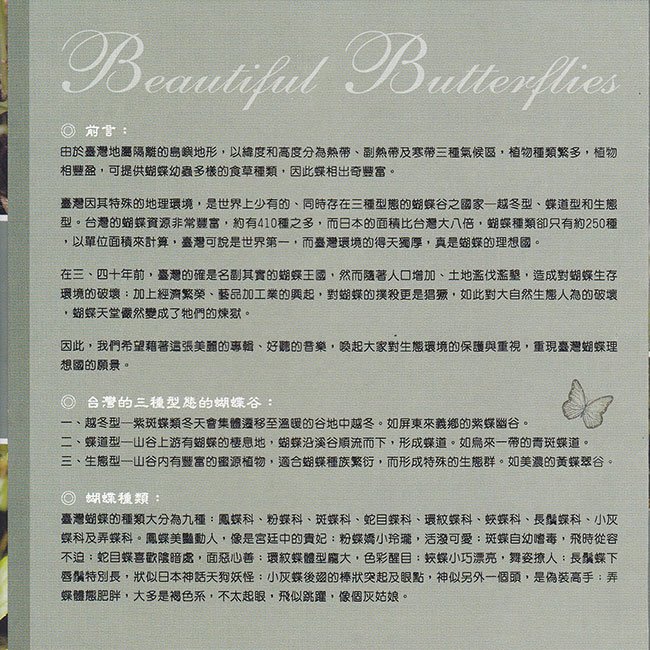 Beautiful Butterflies
◎ 前言：
由於臺灣地屬隔離的島嶼地形，以緯度和高度分為熱帶、副熱帶及寒帶三種氣候區，植物種類繁多，植物
相豐盈，可提供蝴蝶幼蟲多樣的食草種類，因此蝶相出奇豐富。
臺灣因其特殊的地理環境，是世界上少有的、同時存在三種型態的蝴蝶谷之國家─越冬型、蝶道型和生態
型。台灣的蝴蝶資源非常豐富，約有410種之多，而日本的面積比台灣大八倍，蝴蝶種類卻只有約250種
，以單位面積來計算，臺灣可說是世界第一，而臺灣環境的得天獨厚，真是蝴蝶的理想國。
在三、四十年前，臺灣的確是名副其實的蝴蝶王國，然而隨著人口增加、土地濫伐濫墾，造成對蝴蝶生存
環境的破壞；加上經濟繁榮、藝品加工業的興起，對蝴蝶的撲殺更是猖獗，如此對大自然生態人為的破壞
，蝴蝶天堂儼然變成了牠們的煉獄。
因此，我們希望藉著這張美麗的專輯、好聽的音樂，喚起大家對生態環境的保護與重視，重現臺灣蝴蝶理
想國的願景。
◎ 台灣的三種型態的蝴蝶谷：
一、越冬型─紫斑蝶類冬天會集體遷移至溫暖的谷地中越冬。如屏東來義鄉的紫蝶幽谷。
二、蝶道型─山谷上游有蝴蝶的棲息地，蝴蝶沿溪谷順流而下，形成蝶道。如烏來一帶的青斑蝶道。
三、生態型─山谷內有豐富的蜜源植物，適合蝴蝶種族繁衍，而形成特殊的生態群。如美濃的黃蝶翠谷。
◎ 蝴蝶種類：
臺灣蝴蝶的種類大分為九種：鳳蝶科、粉蝶科、斑蝶科、蛇目蝶科、環紋蝶科、蛺蝶科、長鬚蝶科、小灰
蝶科及弄蝶科。鳳蝶美豔動人，像是宮廷中的貴妃；粉蝶嬌小玲瓏，活潑可愛；斑蝶自幼嗜毒，飛時從容
不迫；蛇目蝶喜歡陰暗處，面惡心善；環紋蝶體型龐大，色彩醒目；蛺蝶小巧漂亮，舞姿撩人；長鬚蝶下
唇鬚特別長，狀似日本神話天狗妖怪；小灰蝶後翅的棒狀突起及眼點，神似另外一個頭，是偽裝高手；弄
蝶體態肥胖，大多是褐色系，不太起眼，飛似跳躍，像個灰姑娘。